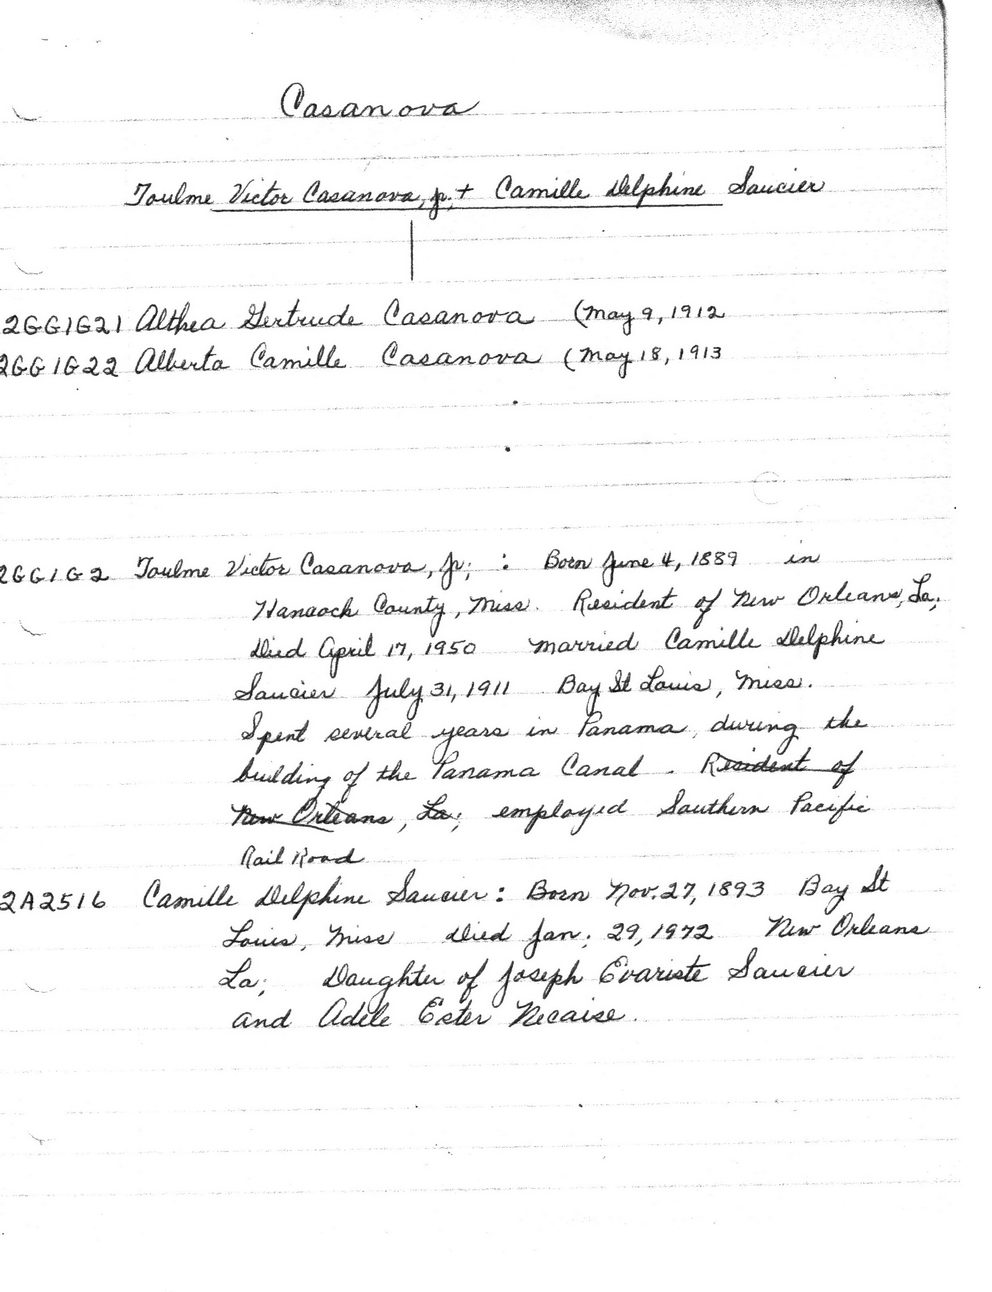 Casanova
Toulme Victor Casanova, Jr. + Camille Delphine Saucier
2GG1G21 Althea Gertrude Casanova (May 9, 1912
2GG1G22 Alberta Camille Casanova (May 18, 1913
2GG1G2 Toulme Victor Casanova, Jr; : Born June 4, 1889 in
Hancock County, Miss. Resident of New Orleans, La;
Died April 17, 1950 married Camille Delphine
Saucier July 31, 1911 Bay St Louis, Miss.
Spent several years in Panama, during the
building of the Panama Canal. Resident of
New Orleans, La; employed Southern Pacific
Rail Road
2A2516 Camille Delphine Saucier: Born Nov. 27, 1893 Bay St
Louis, Miss Died Jan; 29, 1972 New Orleans
La; Daughter of Joseph Evariste Saucier
and Adele Ester Necaise.